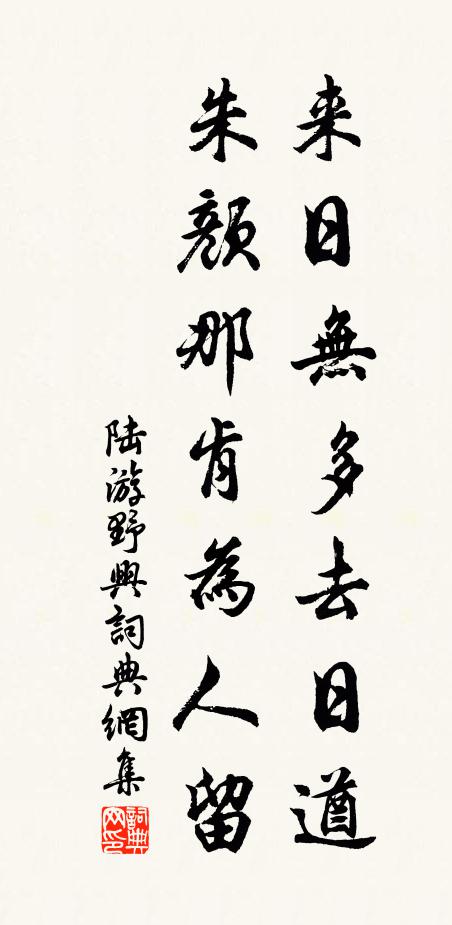 来日無多去日遒
朱顔那肯為人留
陆游野興詞典網集
詞典網印